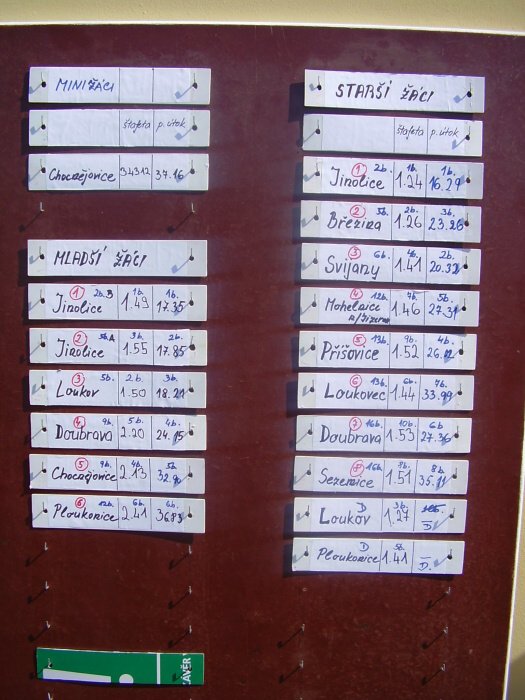 MINIŽÁCI
štafeta p. útok
Chocnějovice 34312 37.16
MLADŠÍ ŽÁCI
1 2b. B 1b. 1b.
Jinolice 1.49 17.35
2 5b. A 3b. 2b.
Jinolice 1.55 17.85
3 5b. 2b. 3b.
Loukov 1.50 18.21
4 9b. 5b. 4b.
Doubrava 2.20 24.15
5 9b. 4b. 5b.
Chocnějovice 2.13
6 12b. 6b. 6b.
Ploukonice 2.41 36.83
STARŠÍ ŽÁCI
štafeta p. útok
1 2b. 1b. 1b.
Jinolice 1.24 16.29
2 5b. 2b. 3b.
Březina 1.26 23.26
3 6b. 4b. 2b.
Svijany 1.41
4 12b. 7b. 5b.
Mohelnice 1.46 27.31
n/Jizerou
5 13b. 9b. 4b.
Příšovice 1.52
6 13b. 6b. 7b.
Loukovec 1.44 33.99
7 16b. 10b. 6b.
Doubrava 1.53 27.36
8 16b. 8b. 8b.
Sezemice 1.51 35.11
D 3b.
Loukov 1.27 D
D 5b.
Ploukonice 1.41 D.
ZÁVĚR